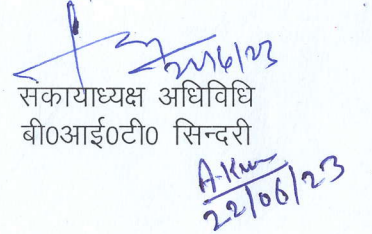 22/6/23
सकायाध्यक्ष अधिविधि
बी0आई0टी0 सिन्दरी
22/06/23